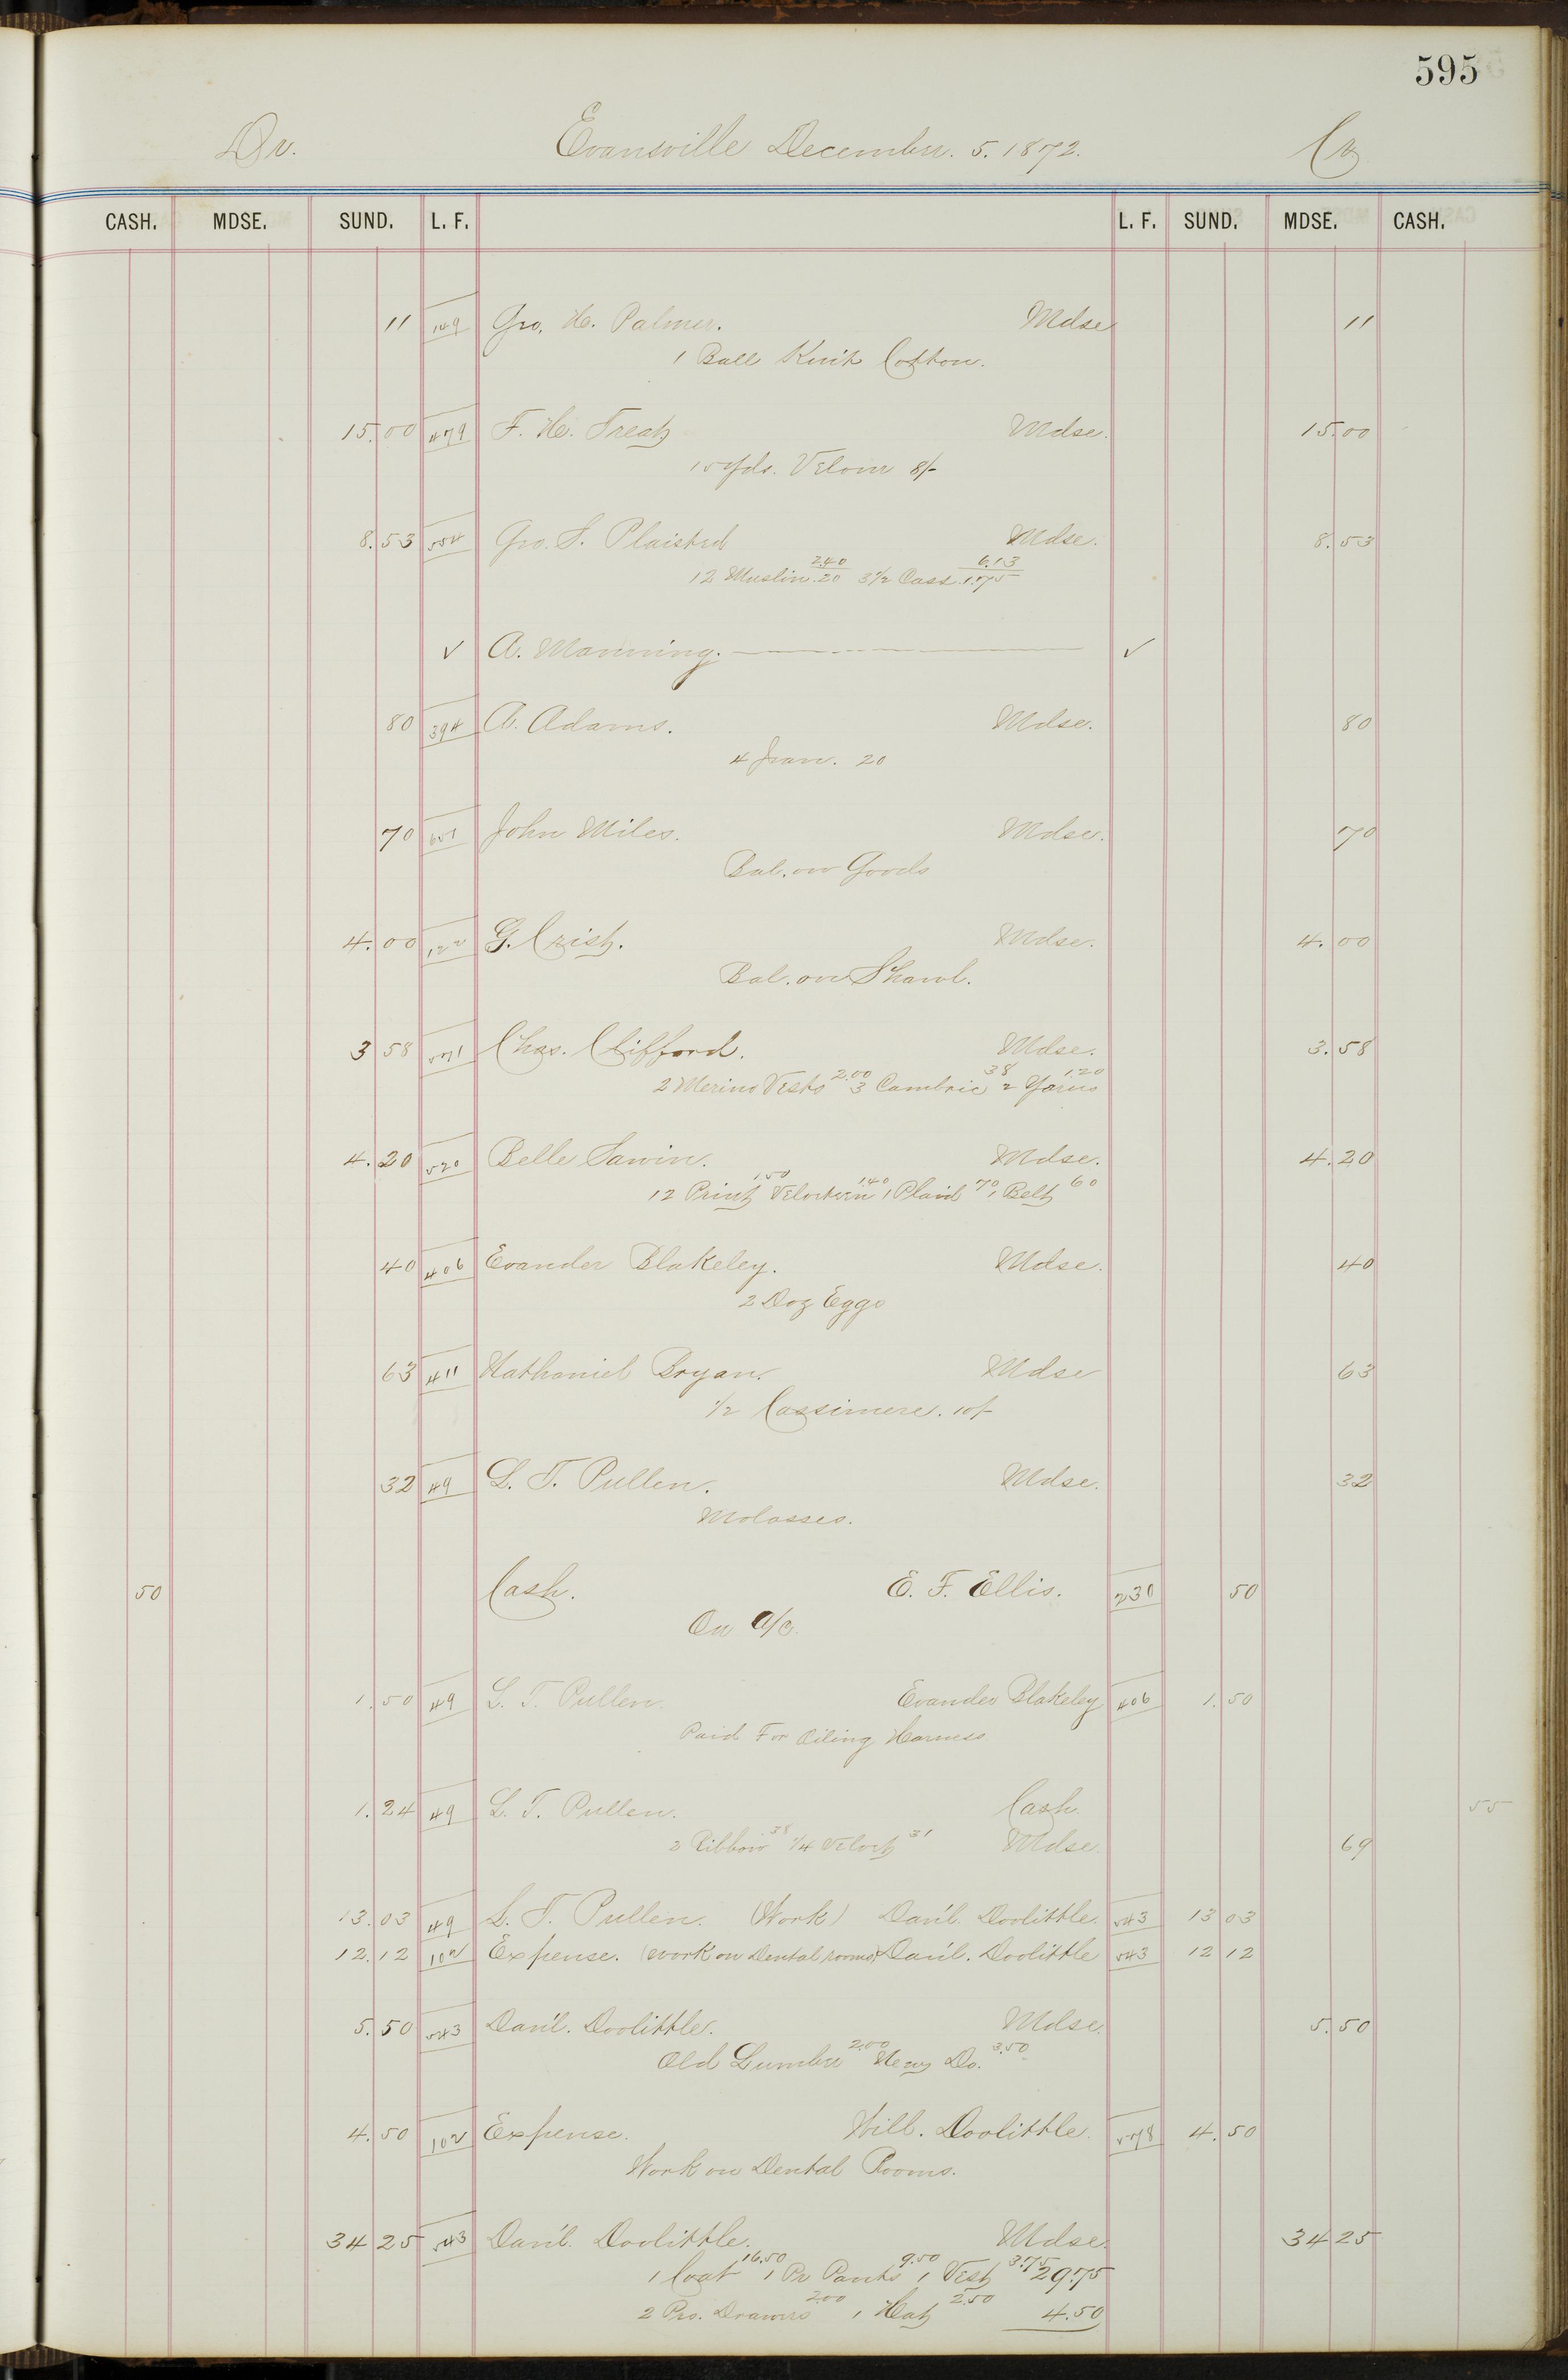 595
Dr. Evansville December. 5. 1872. Cr
CASH. MDSE. SUND. L. F. L. F. SUND. MDSE. CASH.
11 149 Geo. H. Palmer. Mdse 11
1 Ball Knit Cotton.
15.00 479 F. H. Treat Mdse. 15.00
15 yds. Velour 8/-
8.53 554 Geo. S. Plaisted Mdse. 8.53
12 Muslin .20 2.40 3 1/2 Cass. 1.75 6.13
✓ A. Manning. ✓
80 394 A. Adams. Mdse. 80
4 Jean. 20
70 651 John Miles. Mdse. 70
Bal. on Goods
4.00 122 G. Crist. Mdse. 4.00
Bal. on Shawl.
3 58 571 Chas. Clifford. Mdse. 3.58
2 Merino Vests 2.00 3 Cambric 38 2 Yarns 1.20
4.20 520 Belle Sawin. Mdse. 4.20
12 Print 1.50 Velveteen 1.40 1 Plaid 70 1 Belt 60
40 406 Evander Blakeley. Mdse. 40
2 Doz Eggs
63 411 Nathaniel Bryan. Mdse 63
1/2 Cassimere. 10/-
32 49 L. T. Pullen. Mdse. 32
Molasses.
50 Cash. E. F. Ellis. 230 50
On a/c.
1.50 49 L. T. Pullen. Evander Blakeley 406 1.50
Paid For Oiling Harness.
1.24 49 L. T. Pullen. Cash. 55
2 Ribbon 38 1/4 Velvet 31 Mdse. 69
13.03 49 L. T. Pullen. (Work) Dan'l. Doolittle. 543 13 03
12.12 102 Expense. (Work on Dental rooms) Dan'l. Doolittle 543 12 12
5.50 543 Dan'l. Doolittle. Mdse. 5.50
Old Lumber 2.00 New Do. 3.50
4.50 102 Expense. Will. Doolittle. 578 4.50
Work on Dental Rooms.
34 25 543 Dan'l. Doolittle. Mdse. 34 25
1 Coat 16.50 1 Pr Pants 9.50 1 Vest 3.75 29.75
2 Prs. Drawers 2.00 1 Hat 2.50 4.50